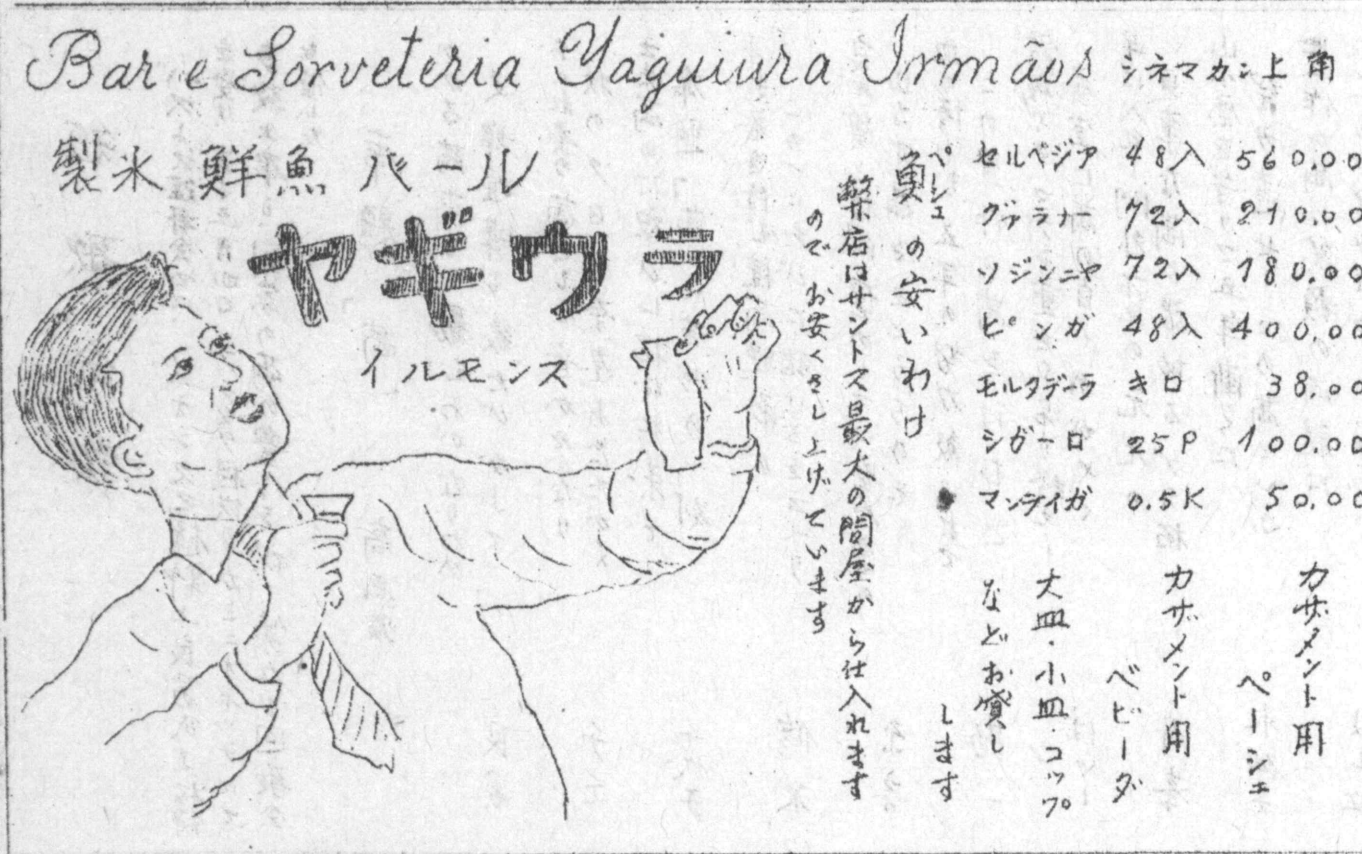 Bar e Sorveteria Yaguiura Irmãos シネマカン上角
製氷 鮮魚 バール
ヤギウラ
イルモンス
セルベジア 48入 560.00
グァラナー 72入 210.00
ソジンニヤ 72入 180.00
ピンガ 48入 400.00
モルタデーラ キロ 38.00
シガーロ 25P 100.00
マンテイガ 0.5K 50.00
カザメント用
ペーシェ
カザメント用
ベビーダ
大皿・小皿・コップ
などお貸し
します
ペシェ
魚の安いわけ
弊店はサントス最大の問屋から仕入れます
のでお安くさし上げています